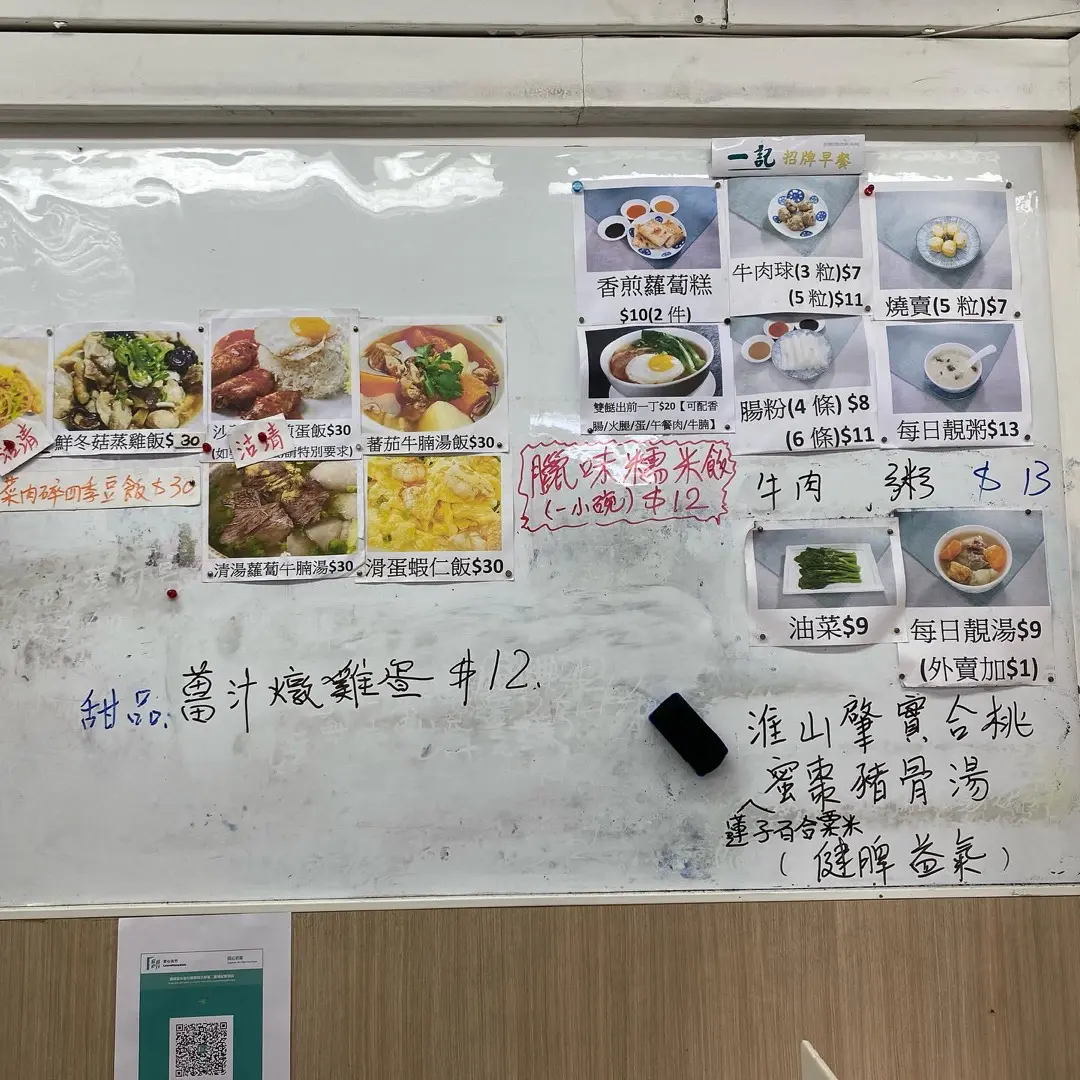 一記 招牌早餐
香煎蘿蔔糕
$10(2 件)
牛肉球(3 粒)$7
(5 粒)$11
燒賣(5 粒)$7
雙餸出前一丁$20【可配香
腸/火腿/蛋/午餐肉/牛腩】
腸粉(4 條) $8
(6 條)$11
每日靚粥$13
鮮冬菇蒸雞飯$30
沽清
沽清
蛋飯$30
蕃茄牛腩湯飯$30
菜肉碎四季豆飯$30
清湯蘿蔔牛腩湯$30
滑蛋蝦仁飯$30
臘味糯米飯
(一小碗) $12
牛肉 粥 $13
油菜$9
每日靚湯$9
(外賣加$1)
甜品: 薑汁燉雞蛋 $12.
淮山肇實合桃
蜜棗豬骨湯
蓮子百合粟米
(健脾益氣)